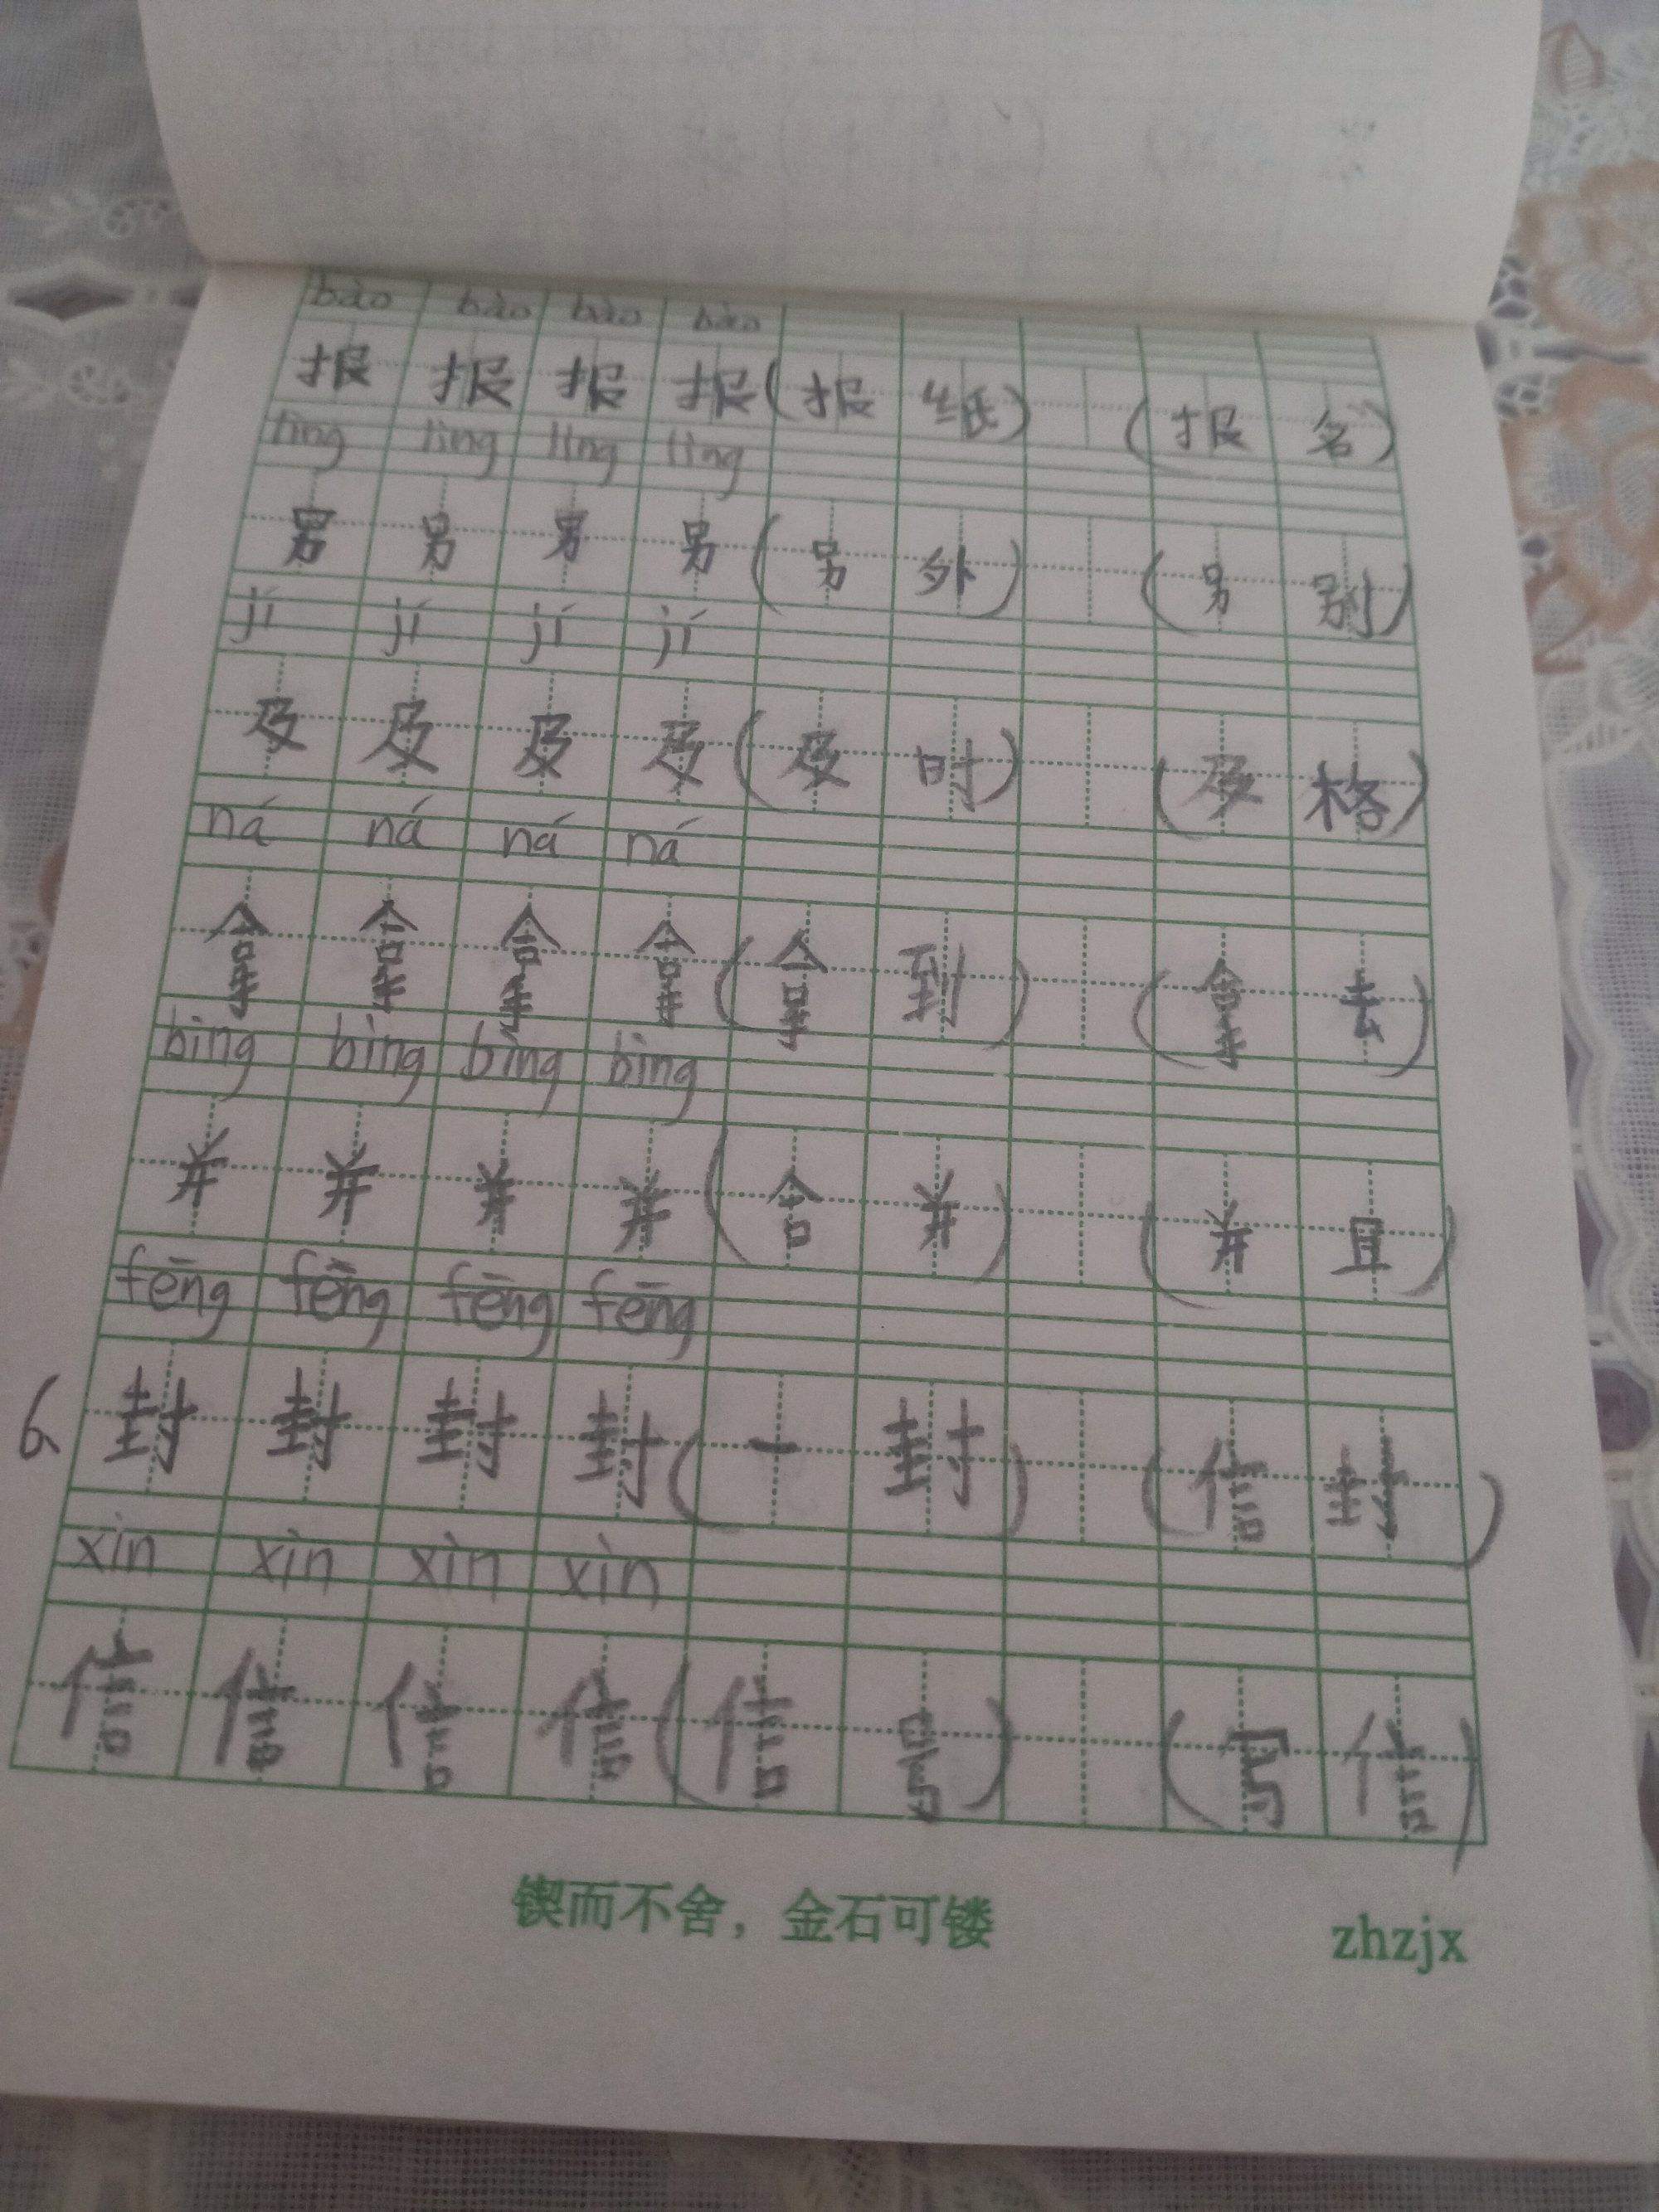 bào bào bào bào
报 报 报 报 (报 纸) (报 名)
lìng lìng lìng lìng
另 另 另 另 (另 外) (另 别)
jí jí jí jí
及 及 及 及 (及 时) (及 格)
ná ná ná ná
拿 拿 拿 拿 (拿 到) (拿 去)
bìng bìng bìng bìng
并 并 并 并 (合 并) (并 且)
fēng fēng fēng fēng
6 封 封 封 封 (一 封) (信 封)
xìn xìn xìn xìn
信 信 信 信 (信 号) (写 信)
锲而不舍，金石可镂 zhzjx